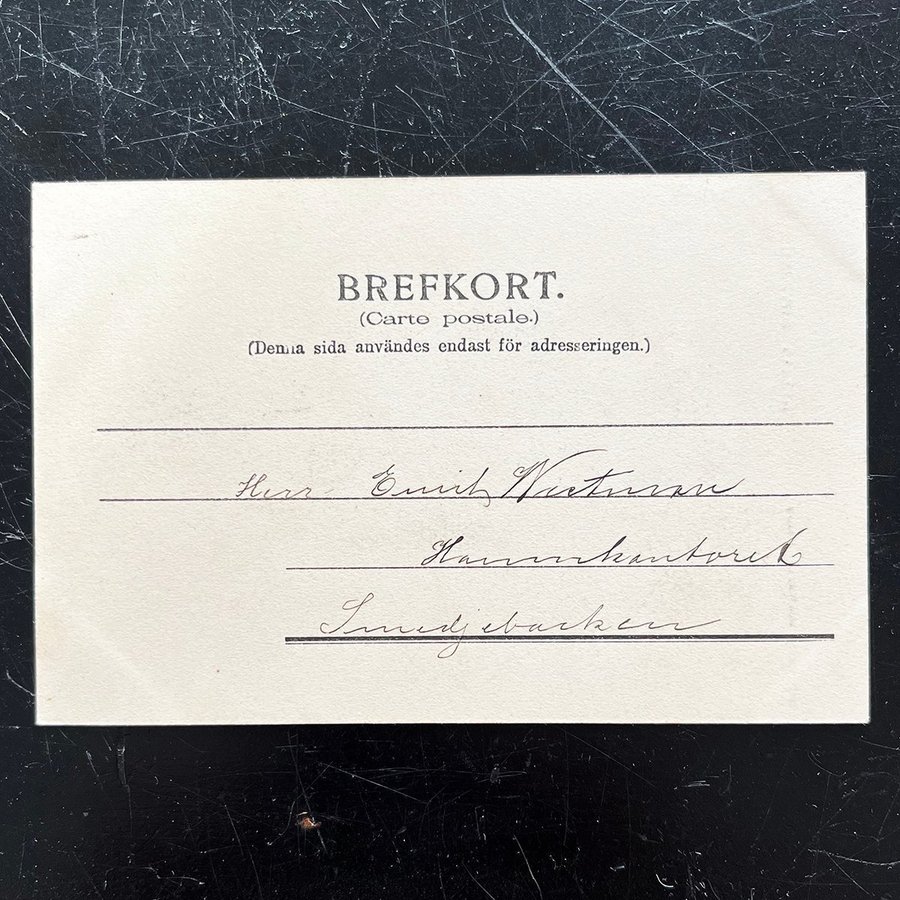 BREFKORT.
(Carte postale.)
(Denna sida användes endast för adresseringen.)
Herr Emil Westman
Hamnkontoret
Smedjebacken